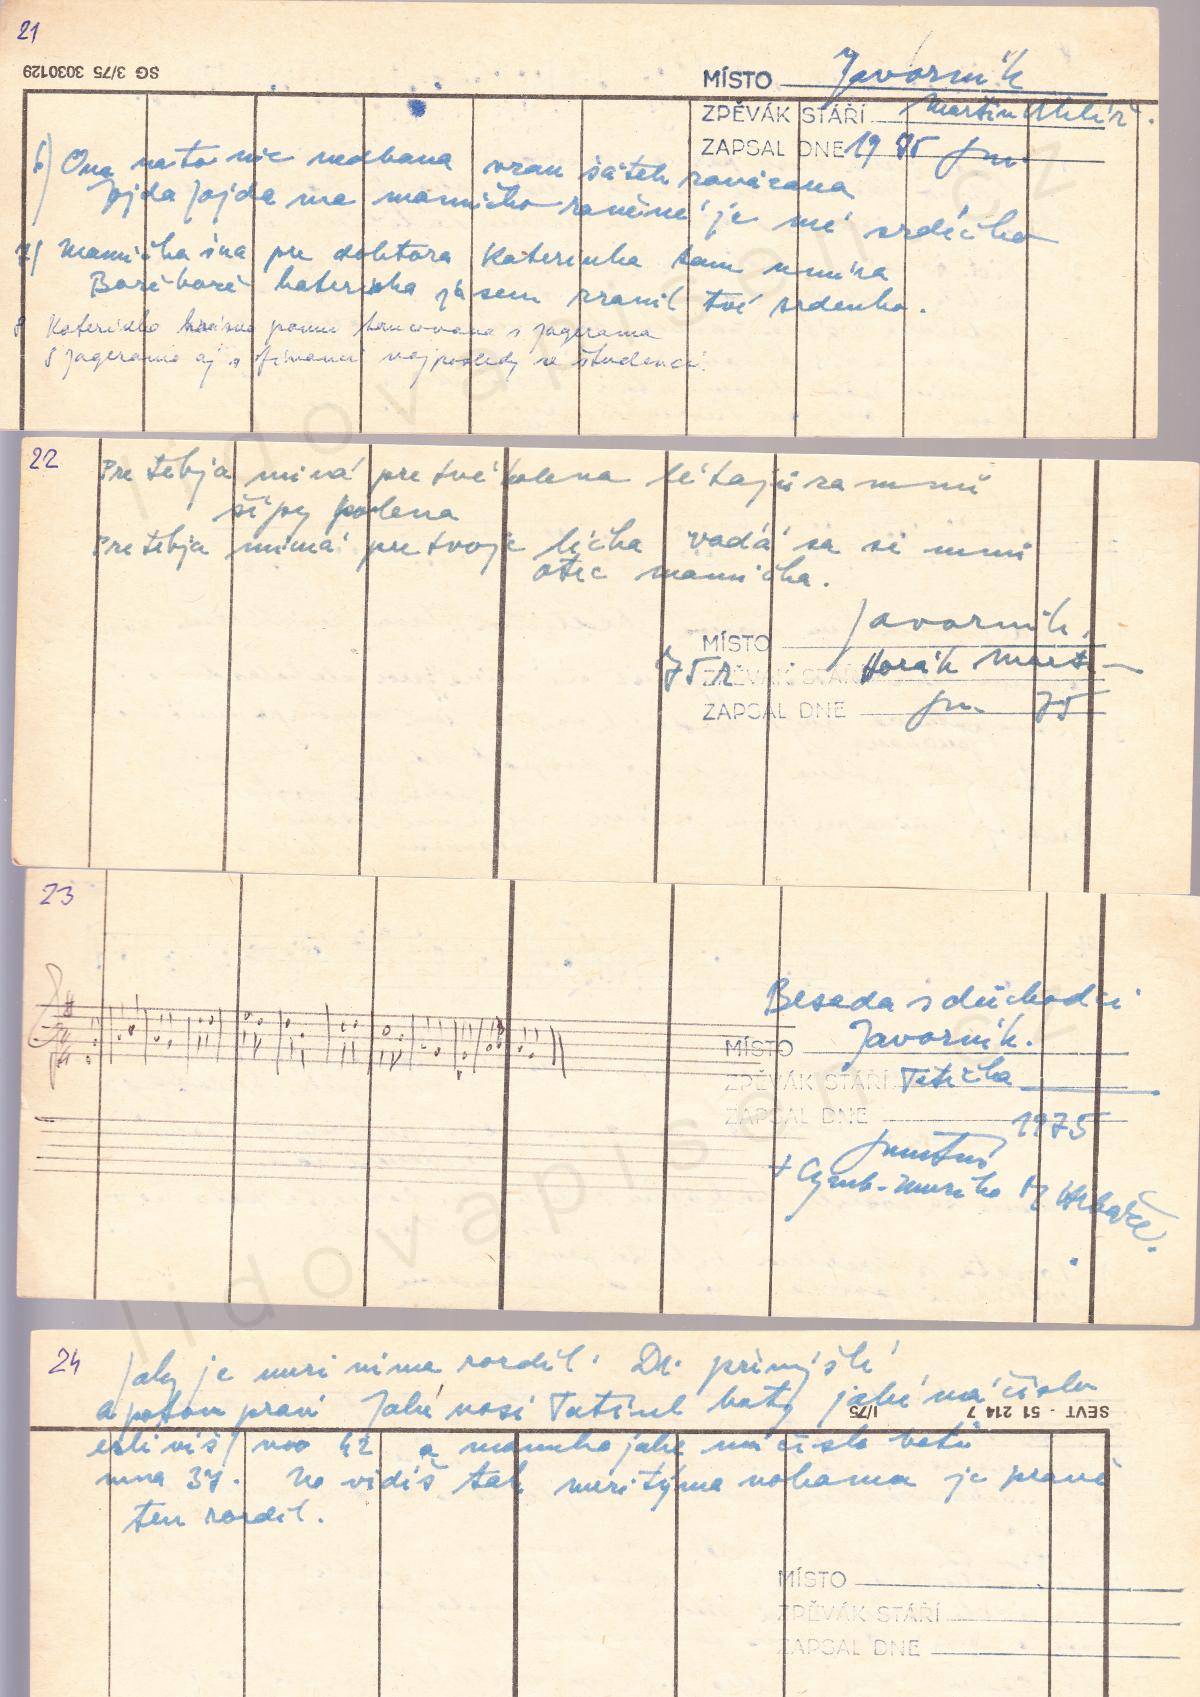 21
SG 3/75 3030129
MÍSTO Javorník
ZPĚVÁK STÁŘÍ Martin
ZAPSAL DNE 19 75
6) Ona na to nic nedbana vzan šátek zavázana
Jojda jojda ma mamičko raněné je mé srdéčko
7) Mamička šna pre doktora Katerinka tam umíra
Bože bože katerinka já sem zranil tvé srdenko.
8 krásně pannu tancovana s jagerama
S jagerama aj s financi najposledy ze študenci.
22
Pre tebja milá pre tvé kolena létajú za mnú
šípy polena
Pre tebja mimá pre tvoje líčka vadá sa se mnú
otec mamička.
MÍSTO Javorník.
75 r ZPĚVÁK STÁŘÍ Horák Mart
ZAPSAL DNE 75
23
Beseda s důchodci
MÍSTO Javorník.
ZPĚVÁK STÁŘÍ Tetička
ZAPSAL DNE 1975
+ Cymb. muzika
24
Jaky je mezi nima rozdíl. Dr. přemýšlí
a potom praví Jaké nosí Tatínek boty jaké má číslo
esli víš) noo 42 a maminka jaké má číslo botů
mna 37. No vidíš tak mezi týma nohama je pravě
ten rozdíl.
SEVT - 51 214 7 I/75
MÍSTO
ZPĚVÁK STÁŘÍ
ZAPSAL DNE
lidovapisen.cz
lidovapisen.cz